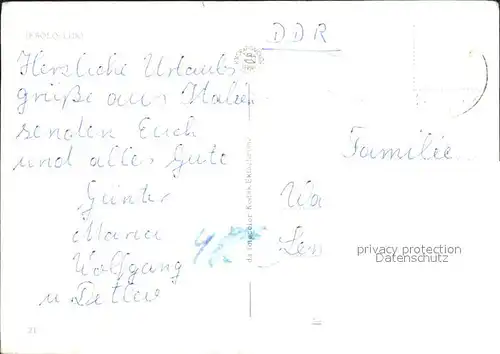 DDR
Herzliche Urlaubs
grüße aus Italien
senden Euch
und alles Gute
Günter
Maria
Wolfgang
u Detlev
Familie
privacy protection
Datenschutz
21